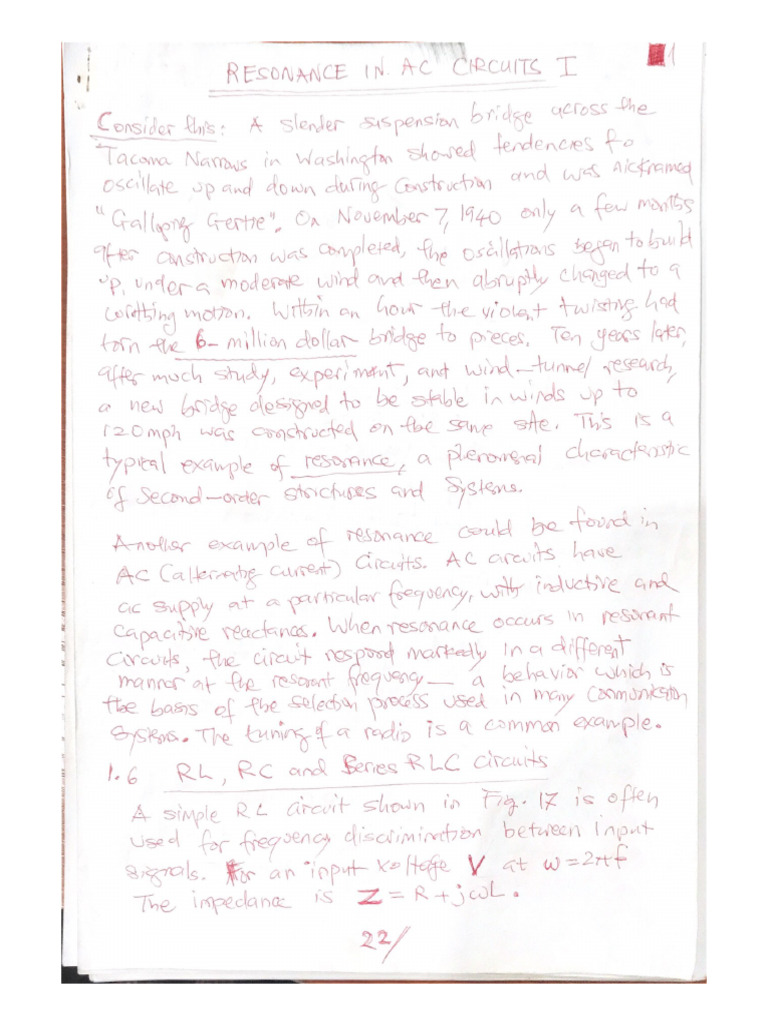 1
RESONANCE IN AC CIRCUITS I
Consider this: A slender suspension bridge across the
Tacoma Narrows in Washington showed tendencies to
oscillate up and down during construction and was nicknamed
"Galloping Gertie". On November 7, 1940 only a few months
after construction was completed, the oscillations began to build
up, under a moderate wind and then abruptly changed to a
writhing motion. Within an hour the violent twisting had
torn the 6-million dollar bridge to pieces. Ten years later,
after much study, experiment, and wind-tunnel research,
a new bridge designed to be stable in winds up to
120mph was constructed on the same site. This is a
typical example of resonance, a phenomenal characteristic
of second-order structures and systems.
Another example of resonance could be found in
AC (alternating current) circuits. AC circuits have
ac supply at a particular frequency, with inductive and
capacitive reactances. When resonance occurs in resonant
circuits, the circuit respond markedly in a different
manner at the resonant frequency — a behavior which is
the basis of the selection process used in many communication
systems. The tuning of a radio is a common example.
1.6 RL, RC and Series RLC circuits
A simple RL circuit shown in Fig. 17 is often
used for frequency discrimination between input
signals. For an input voltage V at ω=2πf
The impedance is Z = R + jωL.
22/